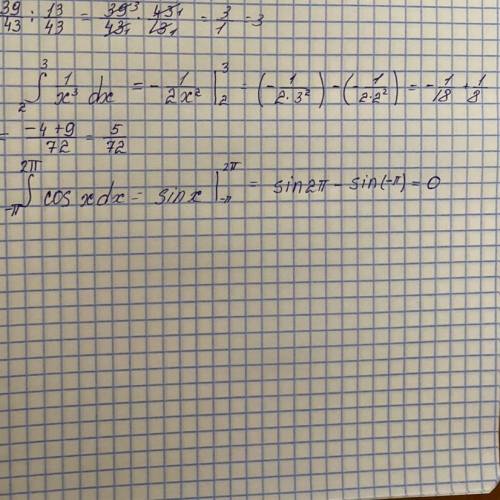 39/43 : 13/43 = 39³/43₁ · 43₁/13₁ = 3/1 = 3
₂∫³ 1/x³ dx = - 1/2x² |₂³ = (- 1/2·3²) - (- 1/2·2²) = - 1/18 + 1/8
= -4+9/72 = 5/72
₋π∫²π cos x dx = sin x |₋π²π = sin2π - sin(-π) = 0